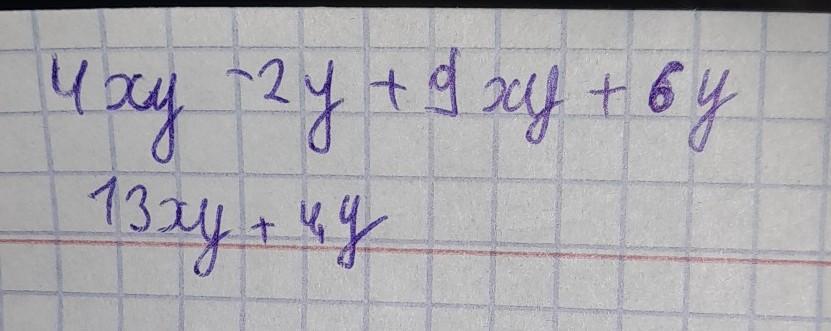 4xy -2y + 9xy + 6y
13xy + 4y